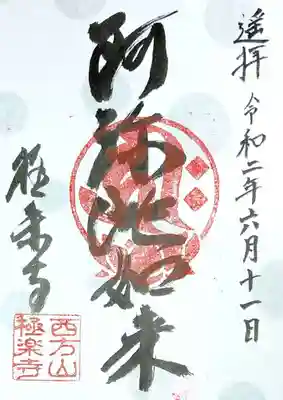 遙拝 令和二年六月十一日
阿弥陀如来
極楽寺
西方山
極楽寺